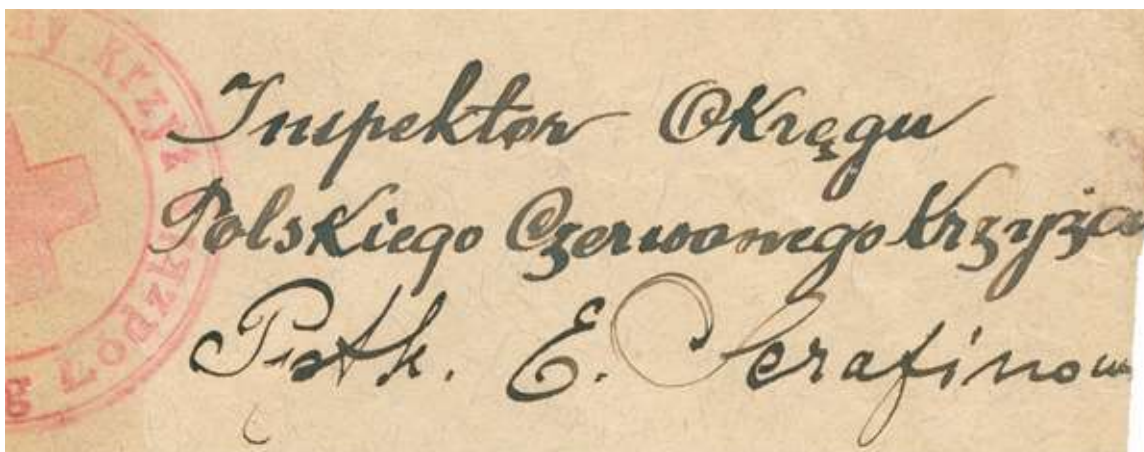 Krzyż
Inspektor Okręgu
Polskiego Czerwonego Krzyża
E. Serafinow